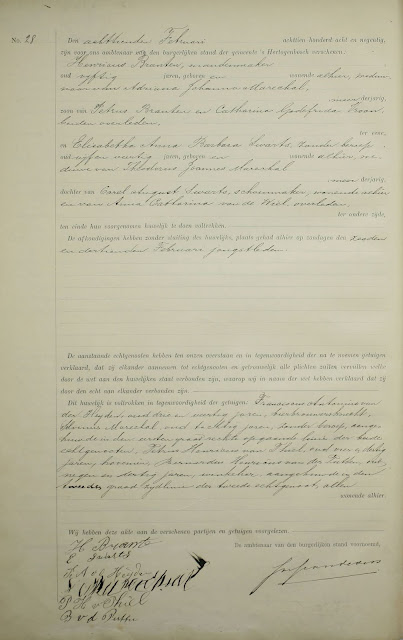 No. 28.
Den achttienden Februari achttien honderd acht en negentig,
zijn voor ons ambtenaar van den burgerlijken stand der gemeente 's Hertogenbosch verschenen:
Henricus Branten, mandenmaker
oud vijftig jaren, geboren en wonende alhier, weduw-
naar van Adriana Johanna Marechal,
meerderjarig,
zoon van Petrus Branten en Catharina Godefrida
beiden overleden.
ter eene,
en Elisabetha Anna Barbara Swarts, zonder beroep,
oud vijf en veertig jaren, geboren en wonende alhier, we-
duwe van Theodorus Joannes Marechal
meerderjarig,
dochter van Carel August Swarts, schoenmaker, wonende alhier
en van Anna Catharina van de Wiel, overleden.
ter andere zijde,
ten einde hun voorgenomen huwelijk te doen voltrekken.
De afkondigingen hebben zonder stuiting des huwelijks, plaats gehad alhier op zondagen den zesden
en dertienden Februari jongstleden.
De aanstaande echtgenooten hebben ten onzen overstaan en in tegenwoordigheid der na te noemen getuigen
verklaard, dat zij elkander aannemen tot echtgenooten en getrouwelijk alle plichten zullen vervullen welke
door de wet aan den huwelijken staat verbonden zijn, waarop wij in naam der wet hebben verklaard dat zij
door den echt aan elkander verbonden zijn.
Dit huwelijk is voltrokken in tegenwoordigheid der getuigen: Franciscus Antonius van
der Heijden, oud drie en veertig jaren, bierbrouwersknecht,
Marechal, oud tachtig jaren, zonder beroep, aange-
huwde in den eersten graad rechte opgaande linie der beide
echtgenooten, Petrus Henricus van Thiel, oud vier en dertig
jaren, hovenier, Hermanus Henricus van der
negen en dertig jaren, winkelier aangehuwde in den
tweeden graad zijlinie der tweede echtgenoot, allen
wonende alhier.
Wij hebben deze akte aan de verschenen partijen en getuigen voorgelezen.
H Brante
E Swarts
De ambtenaar van den burgerlijken stand voornoemd,
F A v d Heyden
Marechal
P H v Thiel
v d